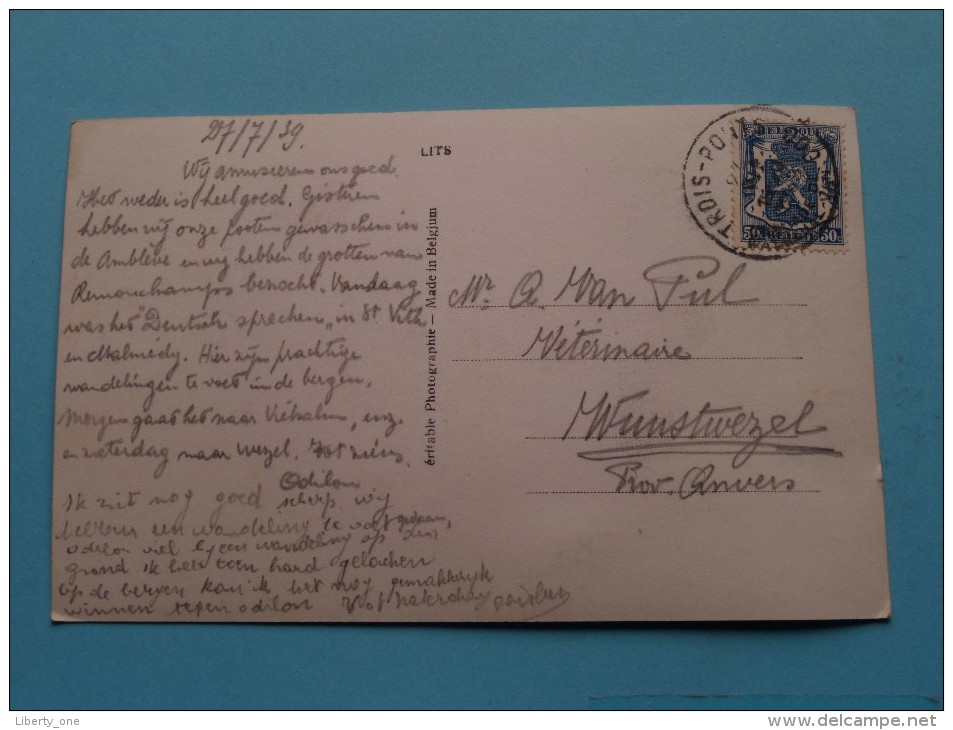 27/7/39.
Wij amuseeren ons goed.
Het weder is heel goed. Gisteren
hebben wij onze pooten gewasschen in
de Amblève en wij hebben de grotten van
Remonchamps bezocht. Vandaag
was het "Deutsch sprechen" in St Vith
en Malmédy. Hier zijn prachtige
wandelingen te voet in de bergen.
Morgen gaat het naar Vielsalm, enz.
en zaterdag naar Wezel. Tot ziens.
Odilon
Ik zit nog goed scherp wij
hebben een wandeling te voet gedaan,
odilon viel bij een wandeling op den
grond ik heb toen hard gelachen
op de bergen kan ik het nog gemakkelijk
winnen tegen odilon tot zaterdag
LITS
éritable Photographie — Made in Belgium
TROIS-PONTS
BELGIQUE
50c BELGIE 50c
Mr. A. Van Pul
Vétérinaire
Wuustwezel
Prov. Anvers
Liberty_one
www.delcampe.net